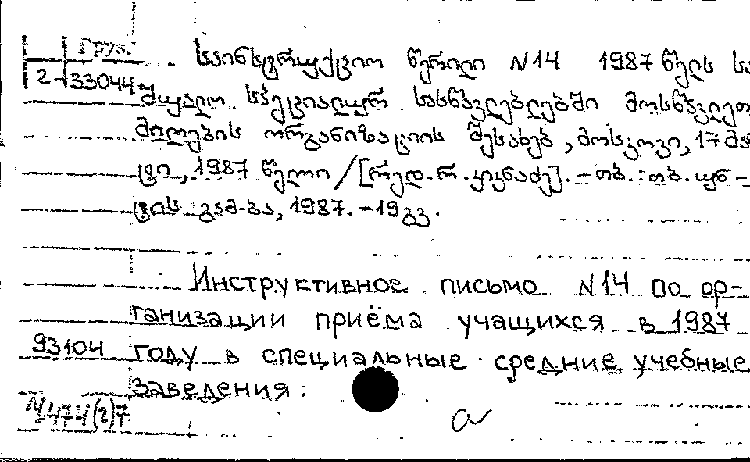 Груз.
2-33044
საინსტრუქციო წერილი N14 1987 წელს სა
შუალო სპეციალურ სასწავლებლებში მოსწავლეთ
მიღების ორგანიზაციის შესახებ, მოსკოვი, 17 მა
, 1987 წელი / [რედ. რ. კიკნაძე]. - თბ. : თბ. უნ -
ტის გამ-ბა, 1987. - 19 გვ.
Инструктивное письмо N14 по ор-
ганизации приёма учащихся в 1987
93104 году в специальные средние учебные
заведения.
N474(2)7